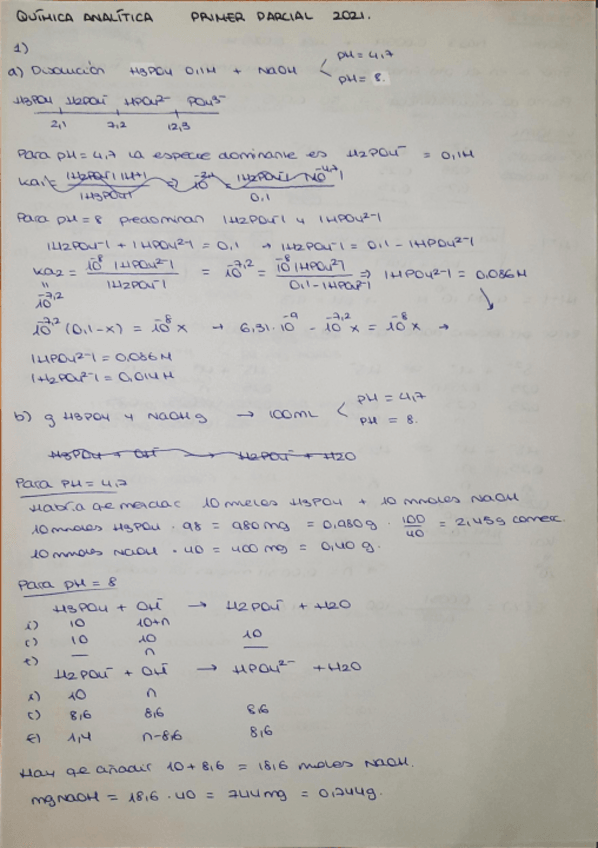 QUÍMICA ANALÍTICA PRIMER PARCIAL 2021.
1)
a) Disolución H3PO4 0,1M + NaOH < pH = 4,7
pH = 8.
H3PO4 H2PO4⁻ HPO4²⁻ PO4³⁻
2,1 7,2 12,3
Para pH = 4,7 la especie dominante es H2PO4⁻ = 0,1M
Ka1 = |H2PO4⁻| |H+| / |H3PO4| => 10^-2,1 = |H2PO4⁻| 10^-4,7 / 0,1
Para pH = 8 predominan |H2PO4⁻| y |HPO4²⁻|
|H2PO4⁻| + |HPO4²⁻| = 0,1 → |H2PO4⁻| = 0,1 - |HPO4²⁻|
Ka2 = 10^-8 |HPO4²⁻| / |H2PO4⁻| = 10^-7,2 = 10^-8 |HPO4²⁻| / 0,1 - |HPO4²⁻| => |HPO4²⁻| = 0,086M
"
10^-7,2
10^-7,2 (0,1-x) = 10^-8 x → 6,31·10^-9 - 10^-7,2 x = 10^-8 x →
|HPO4²⁻| = 0,086M
|H2PO4⁻| = 0,014M
b) g H3PO4 y NaOH g → 100mL < pH = 4,7
pH = 8.
H3PO4 + OH⁻ → H2PO4⁻ + H2O
Para pH = 4,7
Habría qe mezclar 10 mmoles H3PO4 + 10 mmoles NaOH
10 mmoles H3PO4 · 98 = 980 mg = 0,980 g · 100/40 = 2,45g comerc.
10 mmoles NaOH · 40 = 400 mg = 0,40 g.
Para pH = 8
H3PO4 + OH⁻ → H2PO4⁻ + H2O
i) 10 10+n
c) 10 10 10
f) — n —
H2PO4⁻ + OH⁻ → HPO4²⁻ + H2O
i) 10 n
c) 8,6 8,6 8,6
f) 1,4 n-8,6 8,6
Hay qe añadir 10 + 8,6 = 18,6 mmoles NaOH.
mg NaOH = 18,6 · 40 = 744 mg = 0,744g.